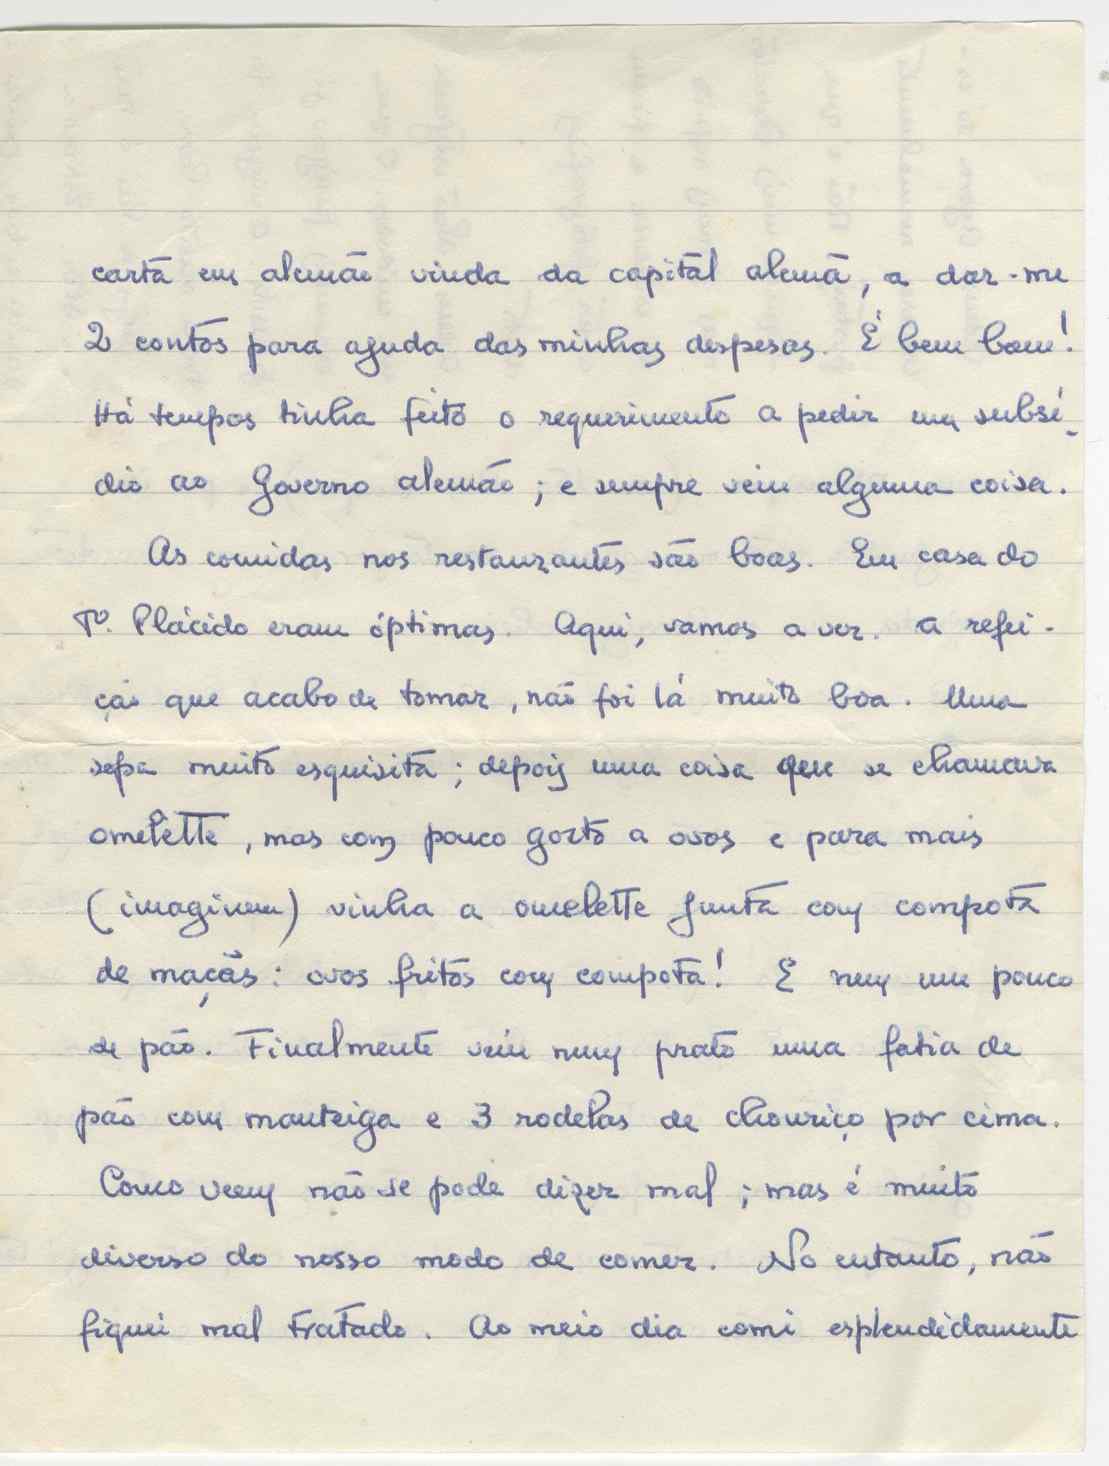 carta em alemão vinda da capital alemã, a dar-me
2 contos para ajuda das minhas despesas. É bem bom!
Há tempos tinha feito o requerimento a pedir um subsí-
dio ao Governo alemão; e sempre veiu alguma coisa.
As comidas nos restaurantes são boas. Em casa do
Pº. Plácido eram óptimas. Aqui, vamos a ver. A refei-
ção que acabo de tomar, não foi lá muito boa. Uma
sopa muito esquisita; depois uma coisa que se chamava
omelette, mas com pouco gosto a ovos e para mais
(imaginem) vinha a omelette junta com compota
de maçãs: ovos fritos com compota! E nem um pouco
de pão. Finalmente veiu num prato uma fatia de
pão com manteiga e 3 rodelas de chouriço por cima.
Como veem não se pode dizer mal; mas é muito
diverso do nosso modo de comer. No entanto, não
fiquei mal tratado. Ao meio dia comi esplendidamente